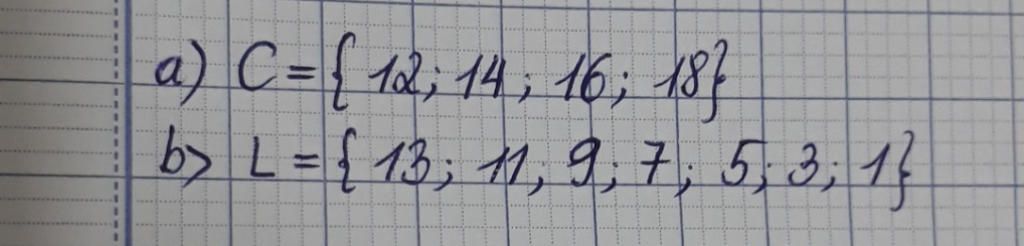 a) C = { 12; 14; 16; 18}
b> L = { 13; 11, 9; 7; 5; 3; 1}